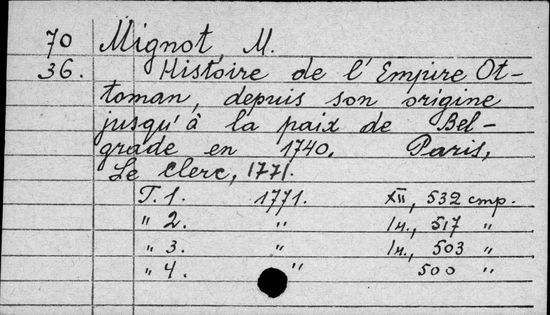 70 Mignot, M.
36. Histoire de l'Empire Ot-
toman, depuis son origine
jusqu'à la paix de Bel-
grade en 1740. Paris,
Le Clerc, 1771.
T. 1. 1771. XII, 532 cmp.
" 2. " 1н., 517 "
" 3. " 1н., 503 "
" 4. " 500 "